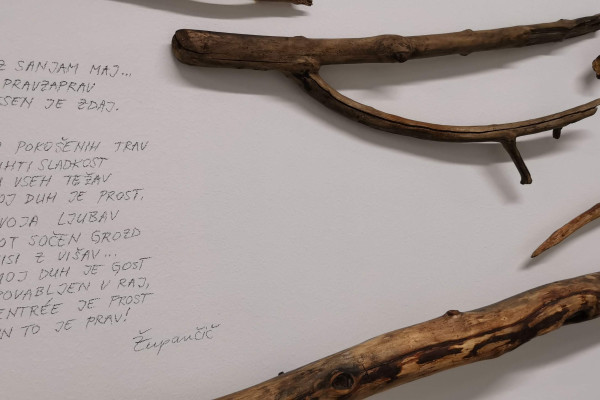 Z SANJAM MAJ...
PRAVZAPRAV
SEN JE ZDAJ.
POKOŠENIH TRAV
HTI SLADKOST
VSEH TEŽAV
OJ DUH JE PROST.
VOJA LJUBAV
OT SOČEN GROZD
ISI Z VIŠAV...
MOJ DUH JE GOST
POVABLJEN V RAJ,
ENTRÉE JE PROST
N TO JE PRAV!
Župančič